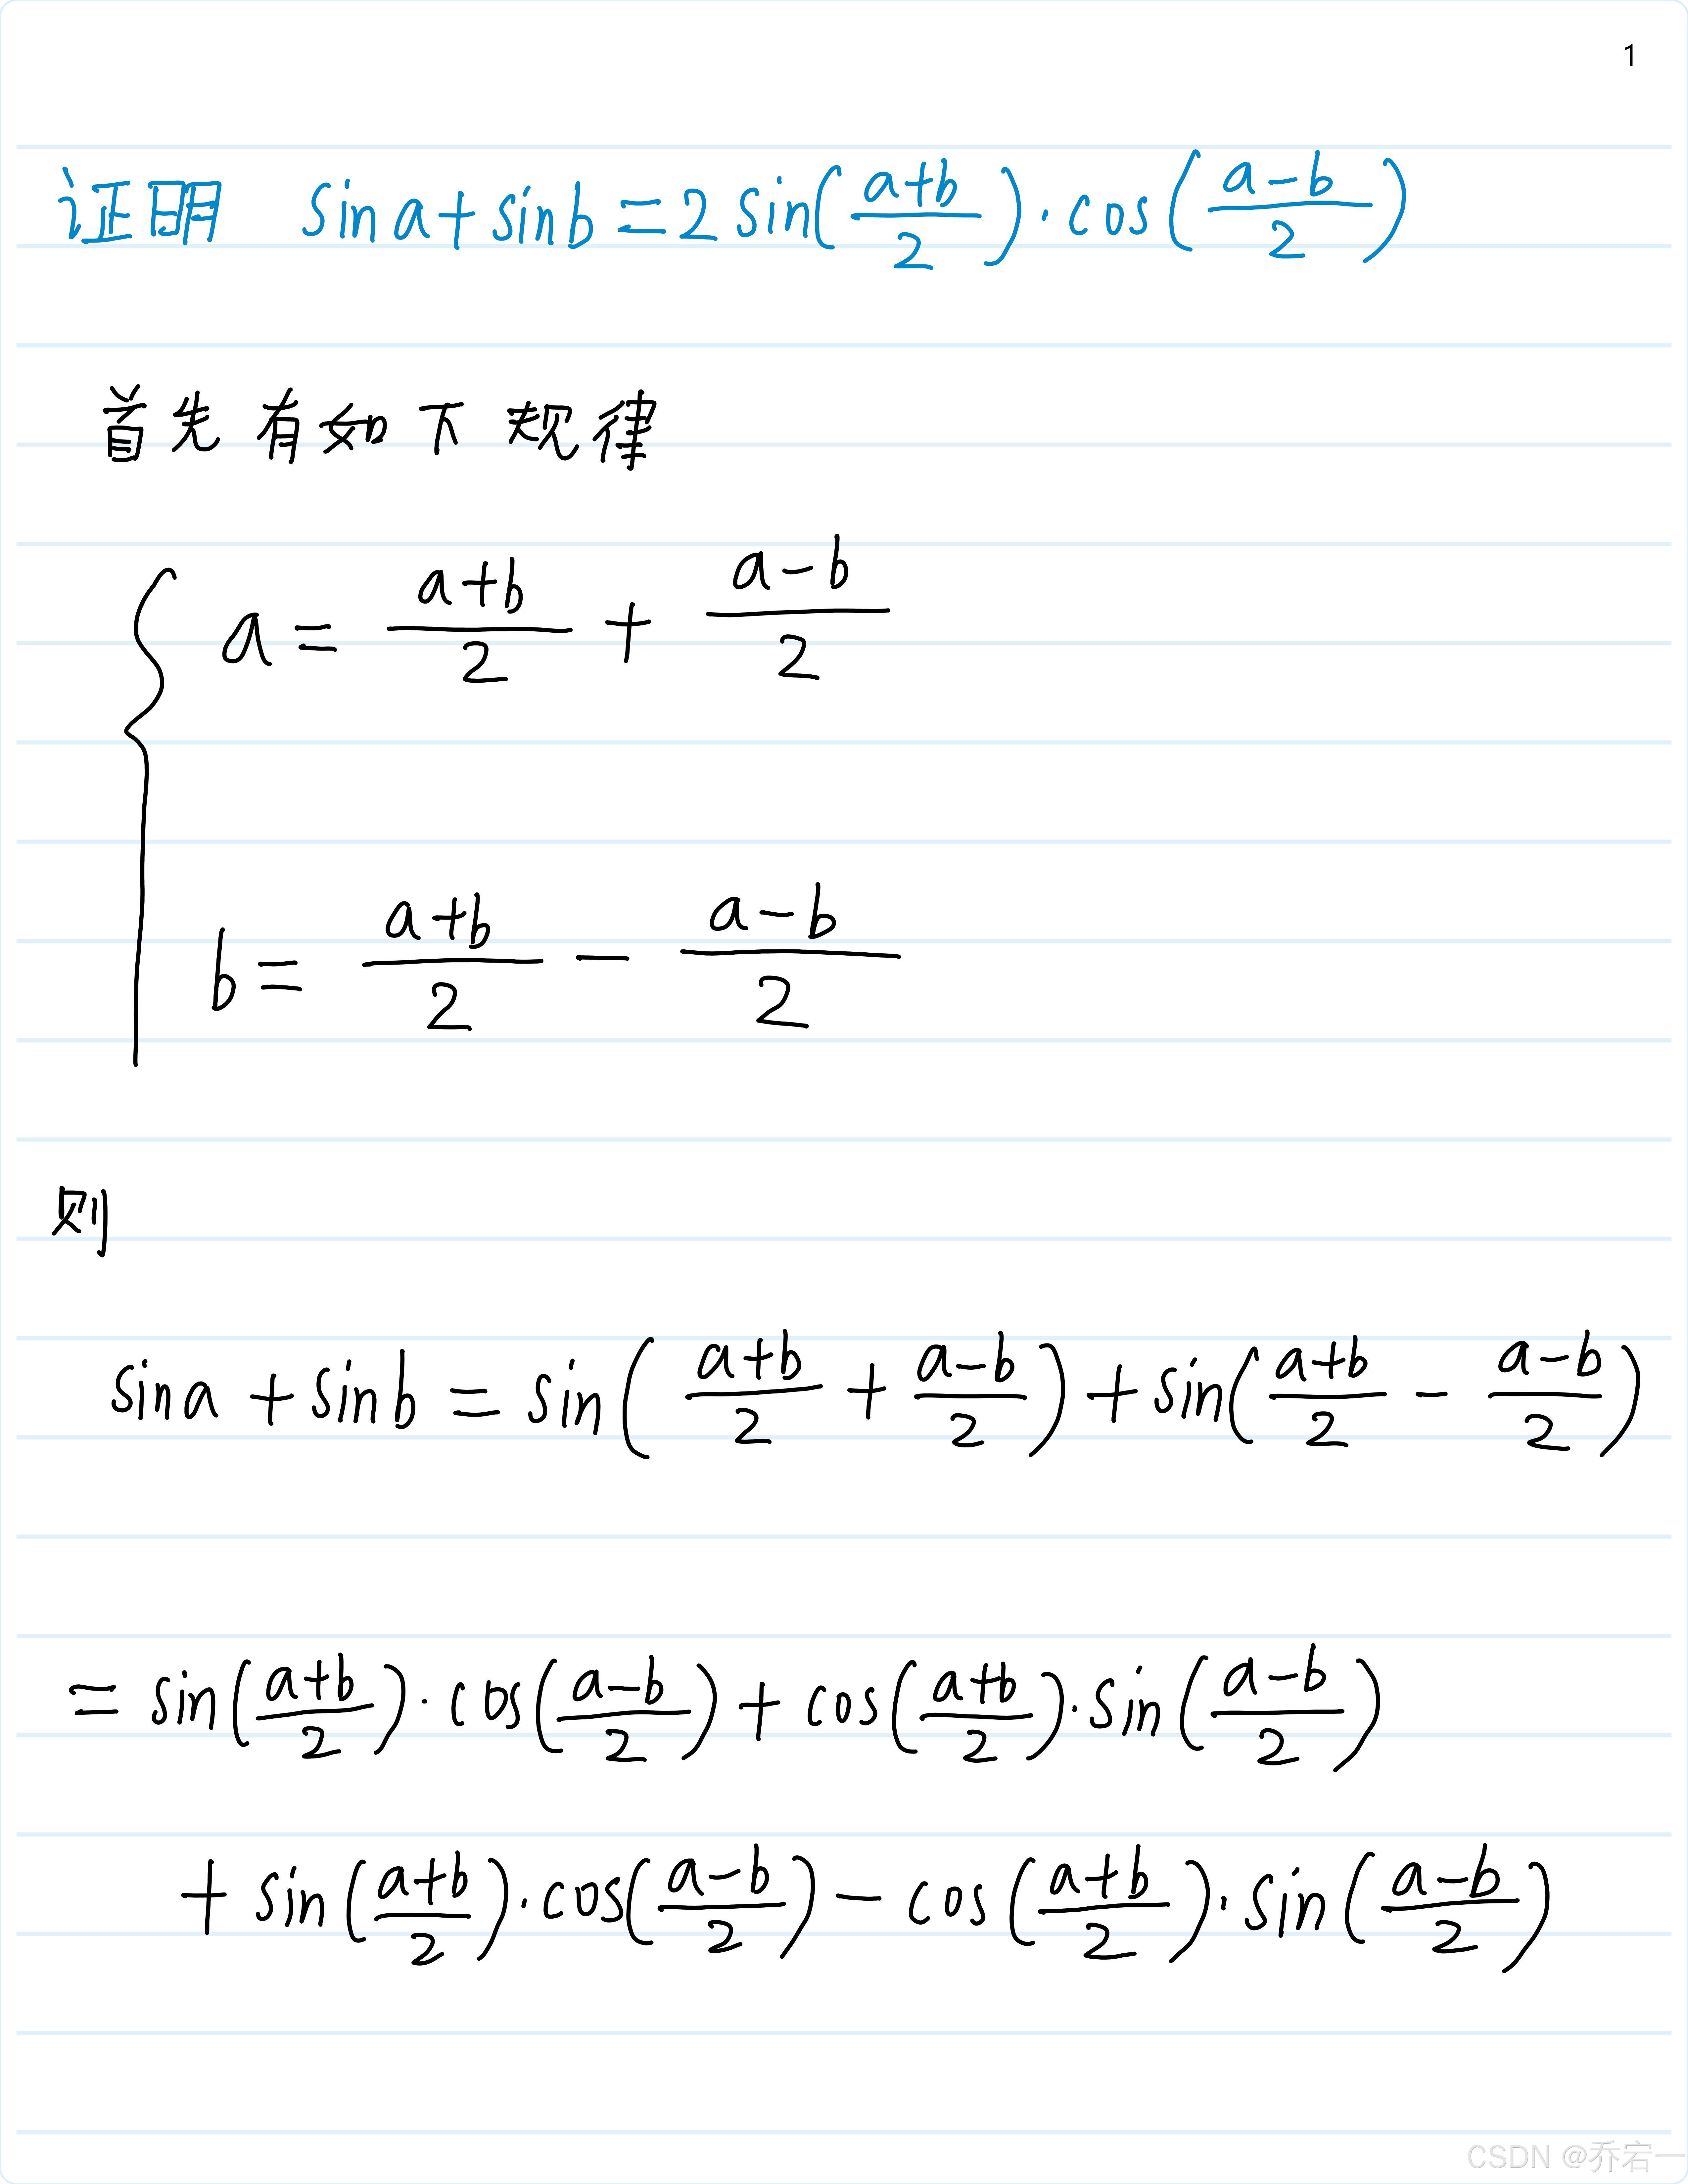 1
证明 sin a + sin b = 2 sin((a+b)/2) · cos((a-b)/2)
首先有如下规律
a = (a+b)/2 + (a-b)/2
b = (a+b)/2 - (a-b)/2
则
sin a + sin b = sin((a+b)/2 + (a-b)/2) + sin((a+b)/2 - (a-b)/2)
= sin((a+b)/2) · cos((a-b)/2) + cos((a+b)/2) · sin((a-b)/2)
+ sin((a+b)/2) · cos((a-b)/2) - cos((a+b)/2) · sin((a-b)/2)
CSDN @乔宕一